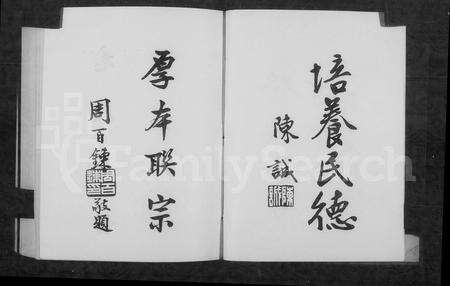 培養民德
陳誠
厚本联宗
周百鍊
敬題
FamilySearch